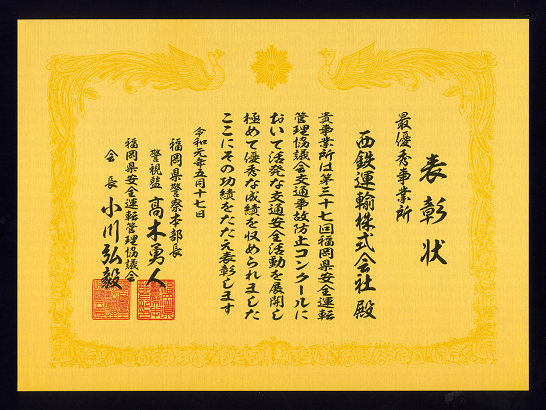 表彰状
最優秀事業所
西鉄運輸株式会社 殿
貴事業所は第三十七回福岡県安全運転
管理協議会交通事故防止コンクールに
おいて活発な交通安全活動を展開し
極めて優秀な成績を収められました
ここにその功績をたたえ表彰します
令和元年五月十七日
福岡県警察本部長
警視監 高木勇人
福岡県安全運転管理協議会
会長 小川弘毅